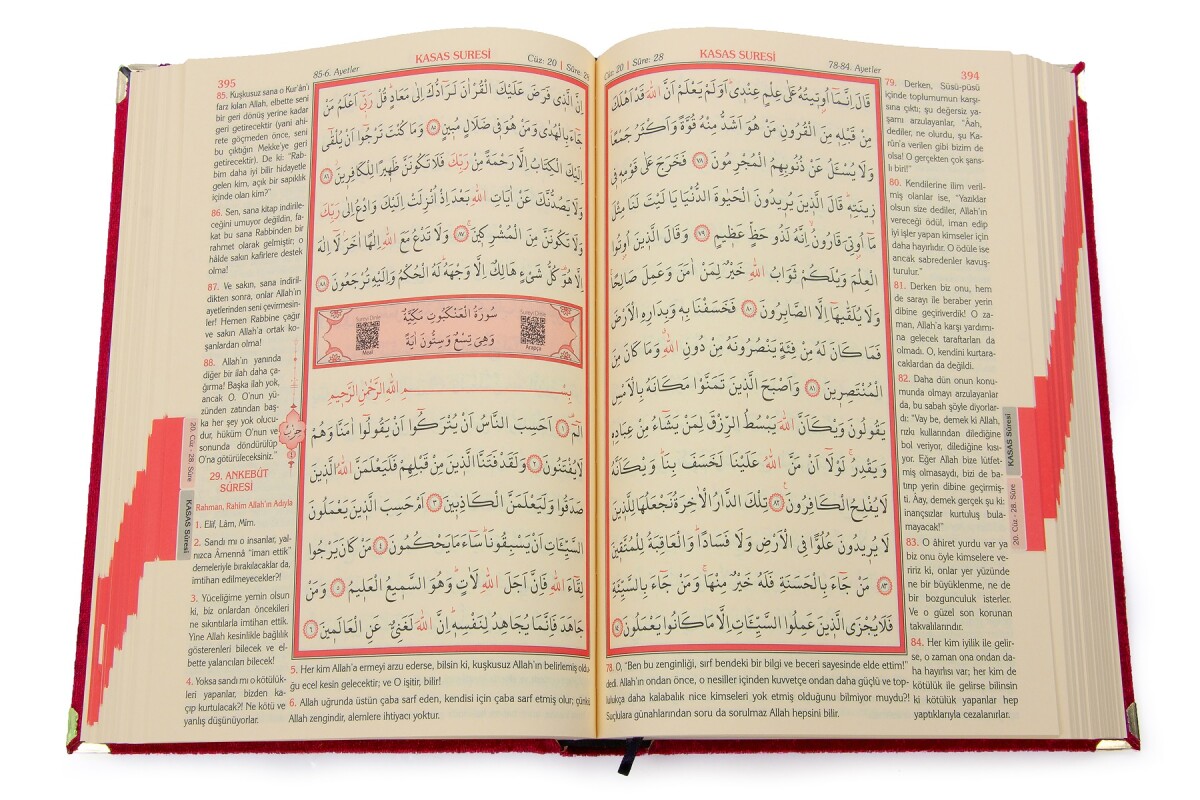 394
KASAS SURESİ
Cüz: 20 | Sûre: 28
78-84. Ayetler
قَالَ اِنَّمَٓا اُو۫تٖيتُهُ عَلٰى عِلْمٍ عِنْدٖيۜ اَوَلَمْ يَعْلَمْ اَنَّ اللّٰهَ قَدْ اَهْلَكَ
مِنْ قَبْلِهٖ مِنَ الْقُرُونِ مَنْ هُوَ اَشَدُّ مِنْهُ قُوَّةً وَاَكْثَرُ جَمْعاًۜ
وَلَا يُسْـَٔلُ عَنْ ذُنُوبِهِمُ الْمُجْرِمُونَ ﴿٧٨﴾ فَخَرَجَ عَلٰى قَوْمِهٖ فٖي
زٖينَتِهٖۜ قَالَ الَّذٖينَ يُرٖيدُونَ الْحَيٰوةَ الدُّنْيَا يَا لَيْتَ لَنَا مِثْلَ
مَٓا اُو۫تِيَ قَارُونُۙ اِنَّهُ لَذُو حَظٍّ عَظٖيمٍ ﴿٧٩﴾ وَقَالَ الَّذٖينَ اُو۫تُوا
الْعِلْمَ وَيْلَكُمْ ثَوَابُ اللّٰهِ خَيْرٌ لِمَنْ اٰمَنَ وَعَمِلَ صَالِحاًۚ
وَلَا يُلَقّٰيهَٓا اِلَّا الصَّابِرُونَ ﴿٨٠﴾ فَخَسَفْنَا بِهٖ وَبِدَارِهِ الْاَرْضَ
فَمَا كَانَ لَهُ مِنْ فِئَةٍ يَنْصُرُونَهُ مِنْ دُونِ اللّٰهِۗ وَمَا كَانَ مِنَ
الْمُنْتَصِرٖينَ ﴿٨١﴾ وَاَصْبَحَ الَّذٖينَ تَمَنَّوْا مَكَانَهُ بِالْاَمْسِ
يَقُولُونَ وَيْكَاَنَّ اللّٰهَ يَبْسُطُ الرِّزْقَ لِمَنْ يَشَٓاءُ مِنْ عِبَادِهٖ
وَيَقْدِرُۚ لَوْلَٓا اَنْ مَنَّ اللّٰهُ عَلَيْنَا لَخَسَفَ بِنَاۜ وَيْكَاَنَّهُ
لَا يُفْلِحُ الْكَافِرُونَ۟ ﴿٨٢﴾ تِلْكَ الدَّارُ الْاٰخِرَةُ نَجْعَلُهَا لِلَّذٖينَ
لَا يُرٖيدُونَ عُلُواًّ فِي الْاَرْضِ وَلَا فَسَاداًۜ وَالْعَاقِبَةُ لِلْمُتَّقٖينَ
﴿٨٣﴾ مَنْ جَٓاءَ بِالْحَسَنَةِ فَلَهُ خَيْرٌ مِنْهَاۚ وَمَنْ جَٓاءَ بِالسَّيِّئَةِ
فَلَا يُجْزَى الَّذٖينَ عَمِلُوا السَّيِّـَٔاتِ اِلَّا مَا كَانُوا يَعْمَلُونَ ﴿٨٤﴾
78. O, "Ben bu zenginliği, sırf bendeki bir bilgi ve beceri sayesinde elde ettim!"
dedi. Allah'ın ondan önce, o nesiller içinden kuvvetçe ondan daha güçlü ve top-
lulukça daha kalabalık nice kimseleri yok etmiş olduğunu bilmiyor muydu?!
Suçlulara günahlarından soru da sorulmaz Allah hepsini bilir.
79. Derken, Süsü-püsü
içinde toplumumun karşı-
sına çıktı; şu değersiz ya-
şamı arzulayanlar, "Âah,
dediler, ne olurdu, şu Ka-
rûn'a verilen gibi bizim de
olsa! O gerçekten çok şans-
lı biri!"
80. Kendilerine ilim veril-
miş olanlar ise, "Yazıklar
olsun size dediler, Allah'ın
vereceği ödül, iman edip
iyi işler yapan kimseler için
daha hayırlıdır. O ödüle ise
ancak sabredenler kavuş-
turulur."
81. Derken biz onu, hem
de sarayı ile beraber yerin
dibine geçiriverdik! O za-
man, Allah'a karşı yardımı-
na gelecek taraftarları da
olmadı. O, kendini kurtara-
caklardan da değildi.
82. Daha dün onun konu-
munda olmayı arzulayanlar
da, bu sabah şöyle diyorlar-
dı: "Vay be, demek ki Allah,
rızkı kullarından dilediğine
bol veriyor, dilediğine kısı-
yor. Eğer Allah bize lütfet-
miş olmasaydı, bizi de ba-
tırıp yerin dibine geçirmiş-
ti. Âay, demek gerçek şu ki:
inançsızlar kurtuluş bula-
mayacak!"
83. O âhiret yurdu var ya
biz onu öyle kimselere ve-
ririz ki, onlar yer yüzünde
ne bir büyüklenme, ne de
bir bozgunculuk isterler.
Ve o güzel son korunan
takvalılarındır.
84. Her kim iyilik ile gelir-
se, o zaman ona ondan da-
ha hayırlısı var; her kim de
kötülük ile gelirse bilinsin
ki kötülük yapanlar hep
yaptıklarıyla cezalanırlar.
KASAS Sûresi
20. Cüz - 28. Sûre
395
85-6. Ayetler
KASAS SURESİ
Cüz: 20 | Sûre: 28
اِنَّ الَّذٖي فَرَضَ عَلَيْكَ الْقُرْاٰنَ لَرَٓادُّكَ اِلٰى مَعَادٍۜ قُلْ رَبّٖٓي اَعْلَمُ مَنْ
جَٓاءَ بِالْهُدٰى وَمَنْ هُوَ فٖي ضَلَالٍ مُبٖينٍ ﴿٨٥﴾ وَمَا كُنْتَ تَرْجُٓوا اَنْ يُلْقٰٓى
اِلَيْكَ الْكِتَابُ اِلَّا رَحْمَةً مِنْ رَبِّكَ فَلَا تَكُونَنَّ ظَهٖيراً لِلْكَافِرٖينَۘ ﴿٨٦﴾
وَلَا يَصُدُّنَّكَ عَنْ اٰيَاتِ اللّٰهِ بَعْدَ اِذْ اُنْزِلَتْ اِلَيْكَ وَادْعُ اِلٰى رَبِّكَ
وَلَا تَكُونَنَّ مِنَ الْمُشْرِكٖينَۚ ﴿٨٧﴾ وَلَا تَدْعُ مَعَ اللّٰهِ اِلٰهاً اٰخَرَۢ لَٓا اِلٰهَ
اِلَّا هُوَ۠ كُلُّ شَيْءٍ هَالِكٌ اِلَّا وَجْهَهُۜ لَهُ الْحُكْمُ وَاِلَيْهِ تُرْجَعُونَ ﴿٨٨﴾
سُورَةُ الْعَنْكَبُوتِ مَكِّيَّةٌ
وَهِيَ تِسْعٌ وَسِتُّونَ اٰيَةً
Sureyi Dinle
Meal
Sureyi Dinle
Arapça
بِسْمِ اللّٰهِ الرَّحْمٰنِ الرَّحٖيمِ
الٓمٓۚ ﴿١﴾ اَحَسِبَ النَّاسُ اَنْ يُتْرَكُٓوا اَنْ يَقُولُٓوا اٰمَنَّا وَهُمْ
لَا يُفْتَنُونَ ﴿٢﴾ وَلَقَدْ فَتَنَّا الَّذٖينَ مِنْ قَبْلِهِمْ فَلَيَعْلَمَنَّ اللّٰهُ الَّذٖينَ
صَدَقُوا وَلَيَعْلَمَنَّ الْكَاذِبٖينَ ﴿٣﴾ اَمْ حَسِبَ الَّذٖينَ يَعْمَلُونَ
السَّيِّـَٔاتِ اَنْ يَسْبِقُونَاۜ سَٓاءَ مَا يَحْكُمُونَ ﴿٤﴾ مَنْ كَانَ يَرْجُوا
لِقَٓاءَ اللّٰهِ فَاِنَّ اَجَلَ اللّٰهِ لَاٰتٍۜ وَهُوَ السَّمٖيعُ الْعَلٖيمُ ﴿٥﴾ وَمَنْ
جَاهَدَ فَاِنَّمَا يُجَاهِدُ لِنَفْسِهٖۜ اِنَّ اللّٰهَ لَغَنِيٌّ عَنِ الْعَالَمٖينَ ﴿٦﴾
حزب
٤
85. Kuşkusuz sana o Kur'ân'ı
farz kılan Allah, elbette seni
bir geri dönüş yerine kadar
geri getirecektir (yani ahi-
rete göçmeden önce, seni
bu çıktığın Mekke'ye geri
getirecektir). De ki: "Rab-
bim daha iyi bilir hidayetle
gelen kim, açık bir sapıklık
içinde olan kim?"
86. Sen, sana kitap indirile-
ceğini umuyor değildin, fa-
kat bu sana Rabbinden bir
rahmet olarak gelmiştir; o
hâlde sakın kafirlere destek
olma!
87. Ve sakın, sana indiril-
dikten sonra, onlar Allah'ın
ayetlerinden seni çevirmesin-
ler! Hemen Rabbine çağır
ve sakın Allah'a ortak ko-
şanlardan olma!
88. Allah'ın yanında
diğer bir ilah daha ça-
ğırma! Başka ilah yok,
ancak O. O'nun yü-
zünden zatından baş-
ka her şey yok olucu-
dur, hüküm O'nun ve
sonunda döndürülüp
O'na götürüleceksiniz."
29. ANKEBÛT
SÛRESİ
Rahman, Rahim Allah'ın Adıyla
1. Elif, Lâm, Mîm.
2. Sandı mı o insanlar, yal-
nızca Âmennâ "iman ettik"
demeleriyle bırakılacaklar da,
imtihan edilmeyecekler?!
3. Yüceliğime yemin olsun
ki, biz onlardan öncekileri
ne sıkıntılarla imtihan ettik.
Yine Allah kesinlikle bağlılık
gösterenleri bilecek ve el-
bette yalancıları bilecek!
4. Yoksa sandı mı o kötülük-
leri yapanlar, bizden ka-
çıp kurtulacak?! Ne kötü ve
yanlış düşünüyorlar.
5. Her kim Allah'a ermeyi arzu ederse, bilsin ki, kuşkusuz Allah'ın belirlemiş oldu-
ğu ecel kesin gelecektir; ve O işitir, bilir!
6. Allah uğrunda üstün çaba sarf eden, kendisi için çaba sarf etmiş olur; çünkü
Allah zengindir, alemlere ihtiyacı yoktur.
20. Cüz - 28. Sûre
KASAS Sûresi